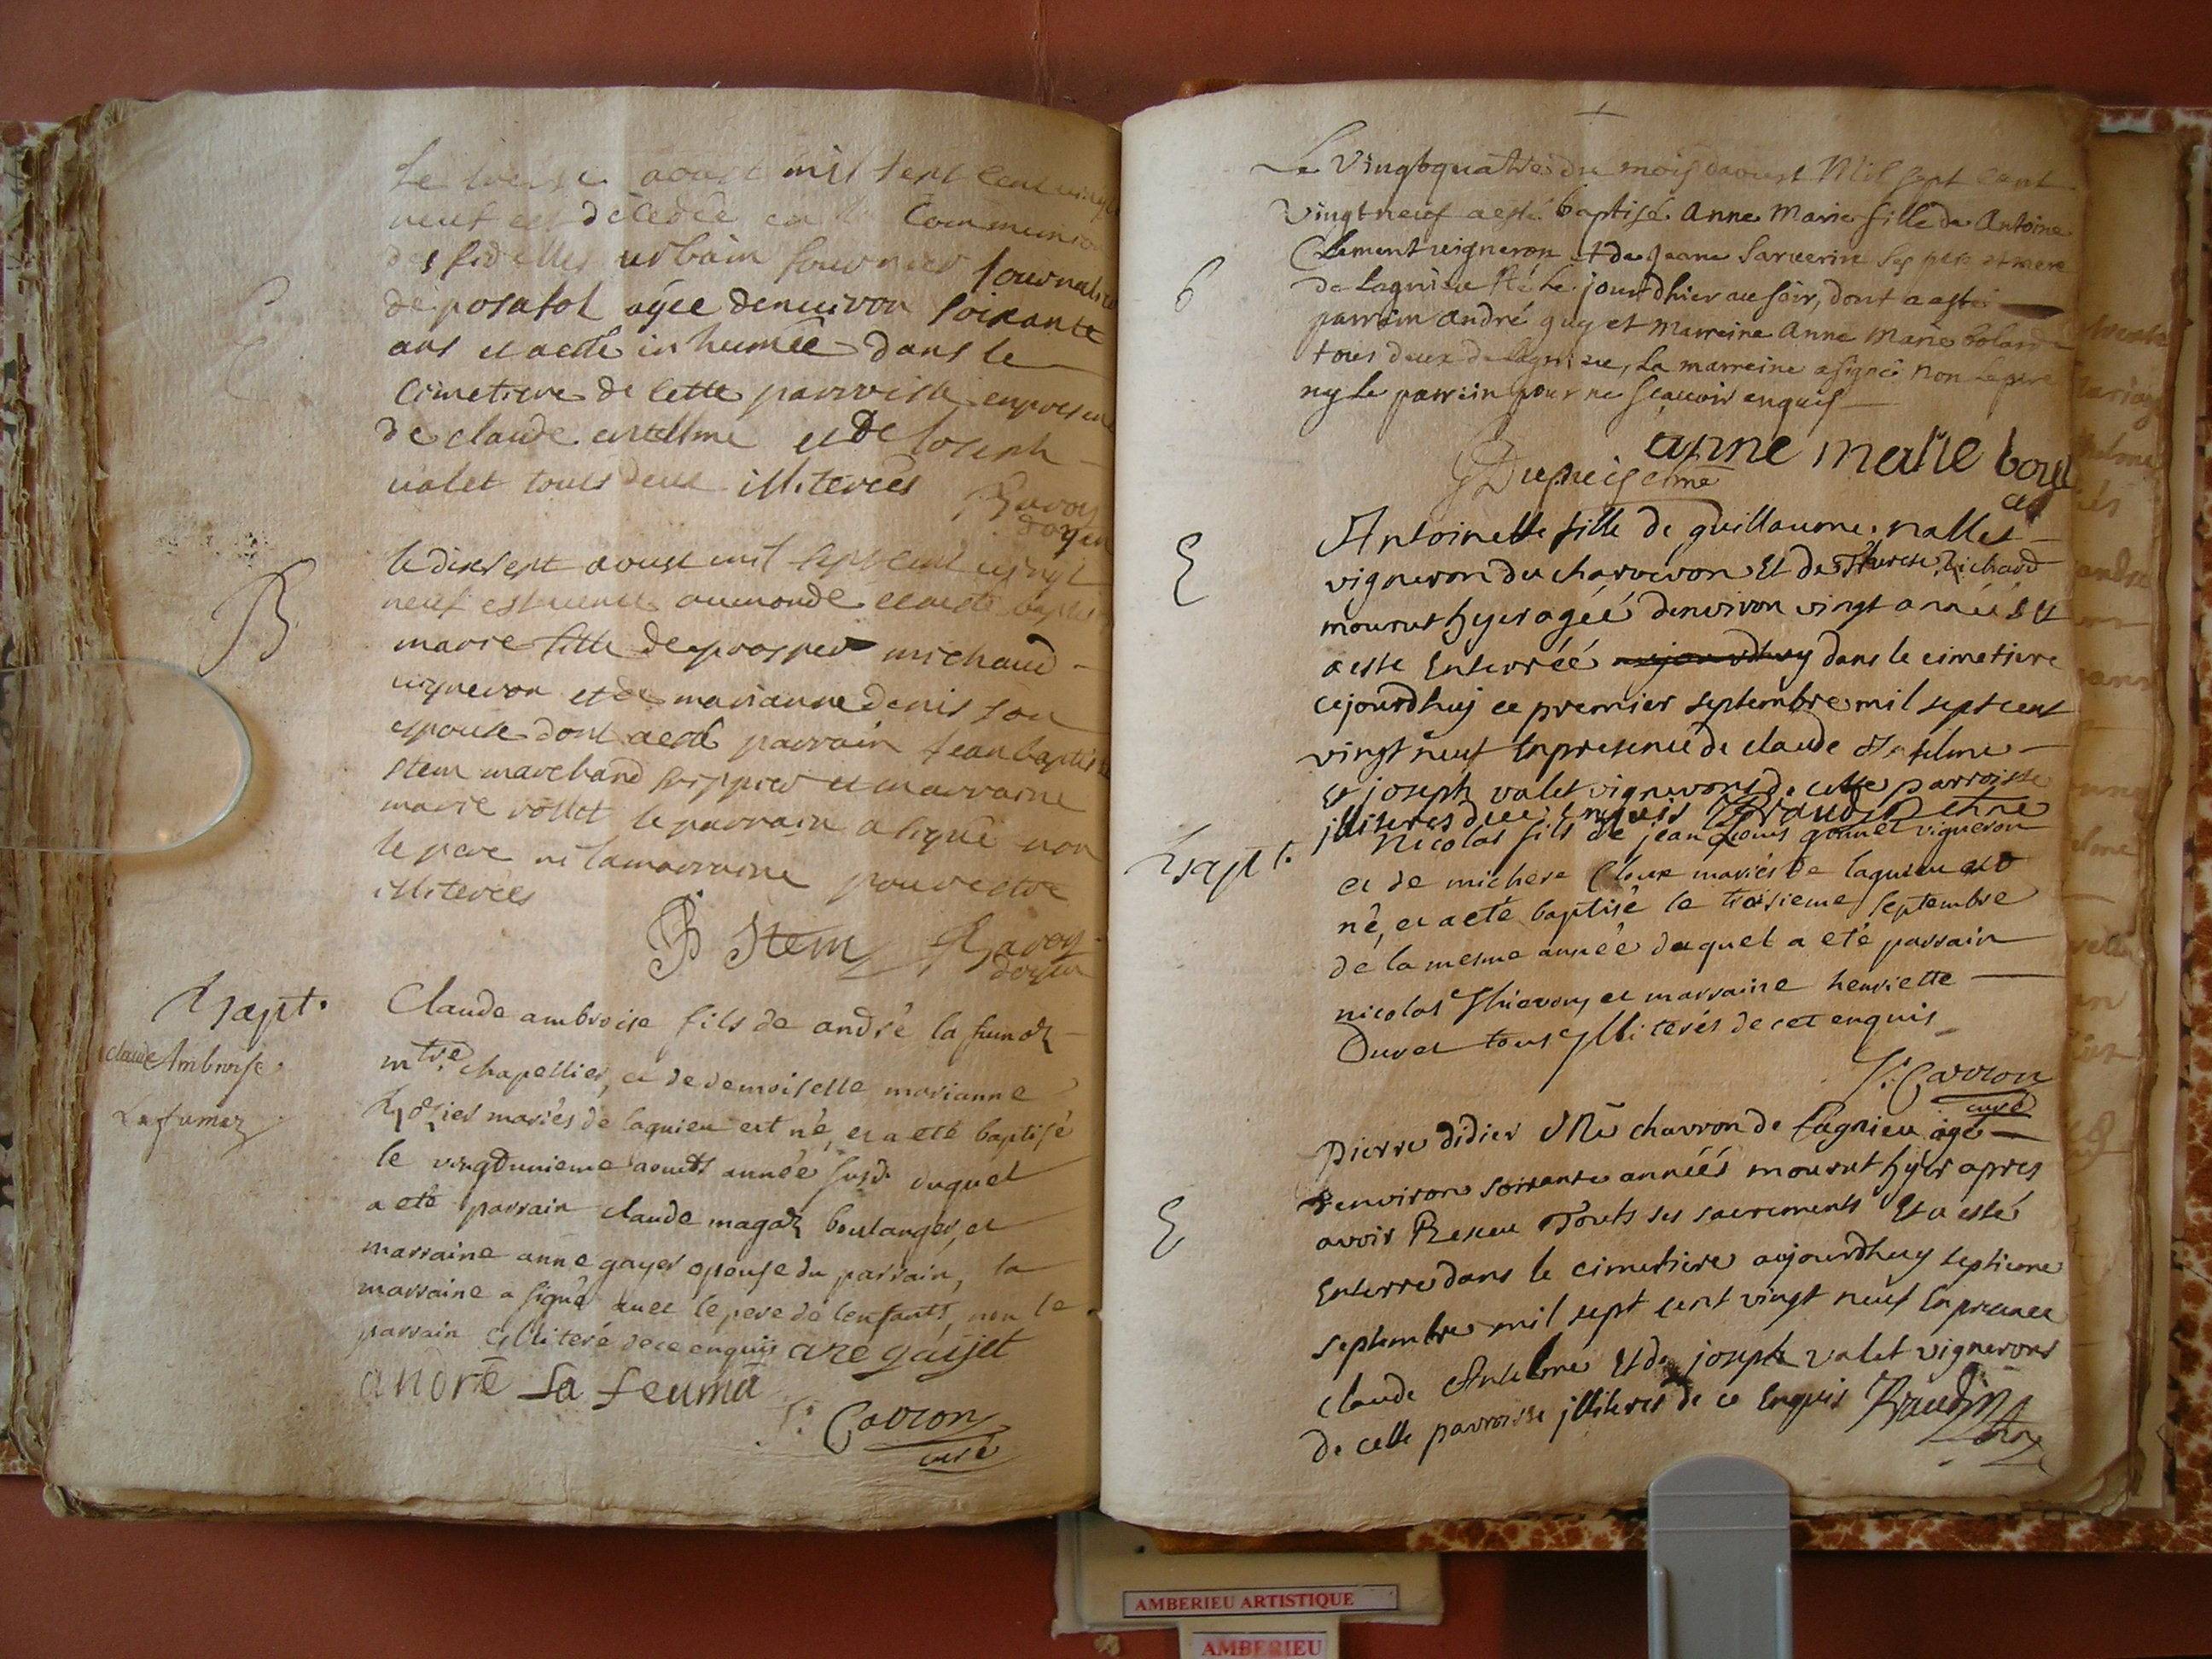 Le treise aoust mil sept cent vingt
neuf est décedée en la Communion
des fidelles urbain fournier Journalier
de posafol agée denuiron soixante
ans et a esté inhumée dans le
Cimetiere de cette parroisse en presence
de claude anselme et de Joseph
valet touts deux illiterées Ravoy
doyen
B
le dixsept aoust mil sept cent vingt
neuf est venue au monde et a esté baptisée
marie fille de prosper michaud
vigneron et de marianne denis son
espouse dont a esté parrain Jean baptiste
stem marchand frippier et marraine
marie rollet le parrain a signé non
le pere ni la marraine pour estre
illiterées
JB Stem Ravoy
doyen
Bapt.
claude Ambroise
Lafumaz
Claude ambroise fils de andré la fumaz
mtre chapellier, et de demoiselle marianne
mariés de lagnieu est né, et a eté baptisé
le vingtunieme aoust année susd. duquel
a eté parrain claude magaz boulanger, et
marraine anne gayet epouse du parrain, la
marraine a signé avec le pere de lenfant, non le
parrain illiteré de ce enquis are gaijet
andrē la feuma
Carron
curé
Le Vingtquatre du mois daoust Mil sept Cent
Vingtneuf a esté baptisé Anne Marie fille de Antoine
Clement vigneron et de Jeane Sarverin ses pere et mere
de Lagnieu Née Le jourdhier au soir, dont a esté
6
parrain andré guy et Marreine Anne Marie bolard
tous deux de lagnieu, La marreine a signé non le pere
ny Le parrein pour ne sçauoir enquis
anne marie boul
Dupuis
E
Antoinette fille de guillaume nallet
vigneron du charveron Et de Therese Richard
mourut hyer agéé denviron vingt années Et
a esté Enterréé aujourdhuy dans le cimetiere
cejourdhuy ce premier septembre mil sept cent
vingt neuf En presence de claude Anselme
Et joseph valet vignerons de cette parroisse
illiteres de ce Enquis Braudin
Bapt.
Nicolas fils de jean Louis gonnet vigneron
et de michere Cloux mariés de lagnieu est
né, et a eté baptisé le troisieme septembre
de la mesme année duquel a eté parrain
nicolas Thievon, et marraine henriette
Duret tous illiterés de cet enquis
Carron
curé
E
Pierre didier Mtre charron de Lagnieu agé
denviron soixante années mourut hyer apres
avoir Receu Touts ses sacrements Et a esté
Enterre dans le cimetiere aujourdhuy septieme
septembre mil sept cent vingt neuf En presence
claude Anselme Et de joseph valet vignerons
de cette parroisse illiteres de ce Enquis Braudin
AMBERIEU ARTISTIQUE
AMBERIEU